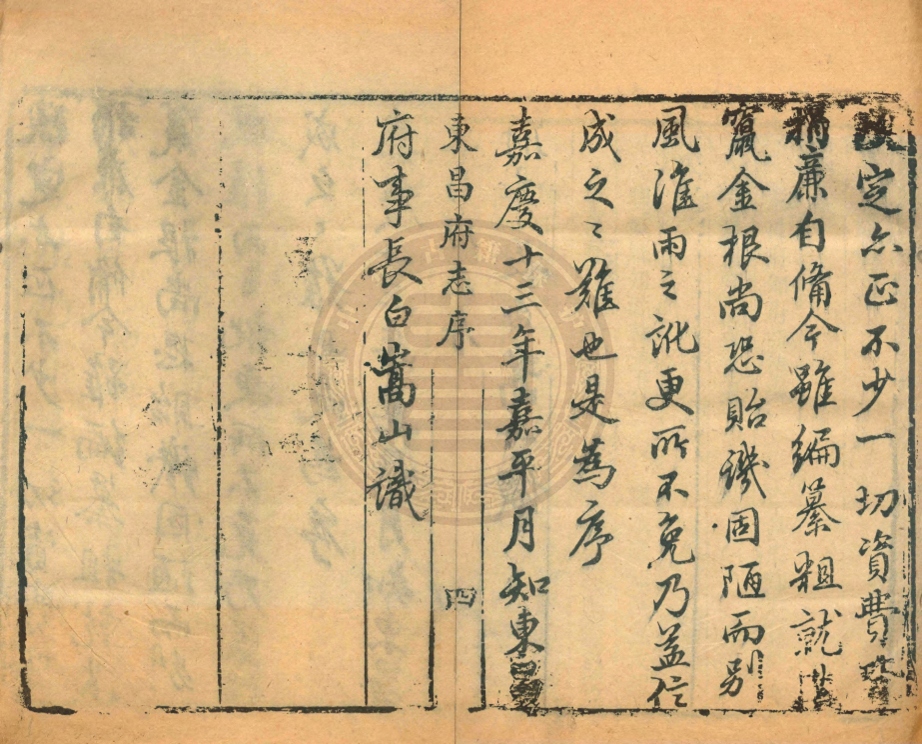 定亦正不少一切資費
捐廉自備今雖編纂粗就
金根尚恐貽譏固陋而別
風淮雨之訛更所不免乃益信
成之之難也是為序
嘉慶十三年嘉平月知東
東昌府志序
四
府事長白嵩山識